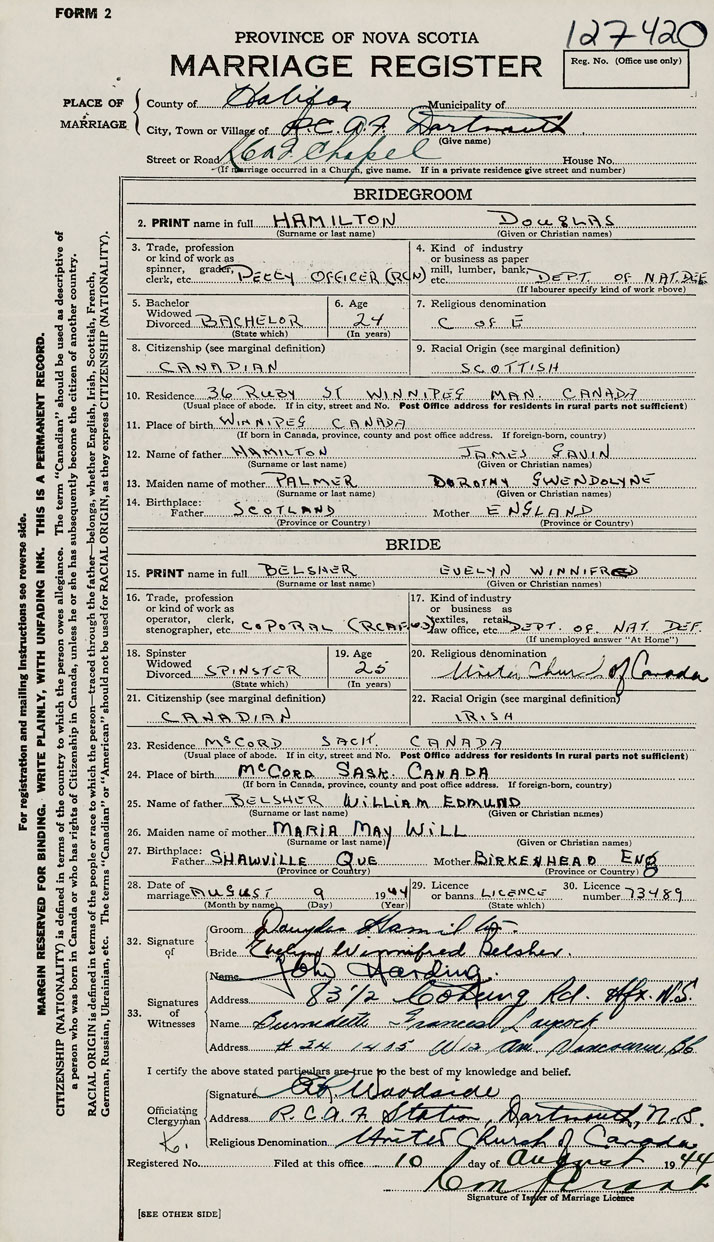 FORM 2
127420
PROVINCE OF NOVA SCOTIA
MARRIAGE REGISTER
Reg. No. (Office use only)
PLACE OF MARRIAGE
County of Halifax Municipality of
City, Town or Village of R.C.A.F. Dartmouth
(Give name)
Street or Road Chapel House No.
(If marriage occurred in a Church, give name. If in a private residence give street and number)
BRIDEGROOM
2. PRINT name in full HAMILTON DOUGLAS
(Surname or last name) (Given or Christian names)
3. Trade, profession or kind of work as spinner, grader, clerk, etc. PETTY OFFICER (RCN)
4. Kind of industry or business as paper mill, lumber, bank, etc. DEPT. OF NAT. DEF
(If labourer specify kind of work above)
5. Bachelor Widowed Divorced BACHELOR
(State which)
6. Age 24
(In years)
7. Religious denomination
C OF E
8. Citizenship (see marginal definition)
CANADIAN
9. Racial Origin (see marginal definition)
SCOTTISH
10. Residence 36 RUBY ST WINNIPEG MAN. CANADA
(Usual place of abode. If in city, street and No. Post Office address for residents in rural parts not sufficient)
11. Place of birth WINNIPEG CANADA
(If born in Canada, province, county and post office address. If foreign-born, country)
12. Name of father HAMILTON JAMES GAVIN
(Surname or last name) (Given or Christian names)
13. Maiden name of mother PALMER DOROTHY GWENDOLYNE
(Surname or last name) (Given or Christian names)
14. Birthplace: Father SCOTLAND Mother ENGLAND
(Province or Country) (Province or Country)
BRIDE
15. PRINT name in full BELSHER EVELYN WINNIFRED
(Surname or last name) (Given or Christian names)
16. Trade, profession or kind of work as operator, clerk, stenographer, etc. COPORAL (RCAF.WD)
17. Kind of industry or business as textiles, retail, law office, etc. DEPT. OF NAT. DEF.
(If unemployed answer "At Home")
18. Spinster Widowed Divorced SPINSTER
(State which)
19. Age 25
(In years)
20. Religious denomination
United Church of Canada
21. Citizenship (see marginal definition)
CANADIAN
22. Racial Origin (see marginal definition)
IRISH
23. Residence McCORD SACK CANADA
(Usual place of abode. If in city, street and No. Post Office address for residents in rural parts not sufficient)
24. Place of birth McCORD SASK. CANADA
(If born in Canada, province, county and post office address. If foreign-born, country)
25. Name of father BELSHER WILLIAM EDMUND
(Surname or last name) (Given or Christian names)
26. Maiden name of mother MARIA MAY WILL
(Surname or last name) (Given or Christian names)
27. Birthplace: Father SHAWVILLE QUE Mother BIRKENHEAD ENG
(Province or Country) (Province or Country)
28. Date of marriage AUGUST 9 1944
(Month by name) (Day) (Year)
29. Licence or banns LICENCE
(State which)
30. Licence number 73489
32. Signature of
Groom Douglas Hamilton.
Bride Evelyn Winnifred Belsher.
33. Signatures of Witnesses
Name John Harding.
Address 83 1/2 Coburg Rd. Hfx. N.S.
Name Bernadette Frances
Address # 24 1405 W 12 Vancouver, BC
I certify the above stated particulars are true to the best of my knowledge and belief.
Officiating Clergyman
Signature Woodside
Address R.C.A.F. Station, Dartmouth, N.S.
Religious Denomination United Church of Canada
Registered No. Filed at this office 10 day of August 1944
Signature of Issuer of Marriage Licence
[SEE OTHER SIDE]
For registration and mailing instructions see reverse side.
MARGIN RESERVED FOR BINDING. WRITE PLAINLY, WITH UNFADING INK. THIS IS A PERMANENT RECORD.
CITIZENSHIP (NATIONALITY) is defined in terms of the country to which the person owes allegiance. The term "Canadian" should be used as descriptive of
a person who was born in Canada or who has rights of Citizenship in Canada, unless he or she has subsequently become the citizen of another country.
RACIAL ORIGIN is defined in terms of the people or race to which the person—traced through the father—belongs, whether English, Irish, Scottish, French,
German, Russian, Ukrainian, etc. The terms "Canadian" or "American" should not be used for RACIAL ORIGIN, as they express CITIZENSHIP (NATIONALITY).